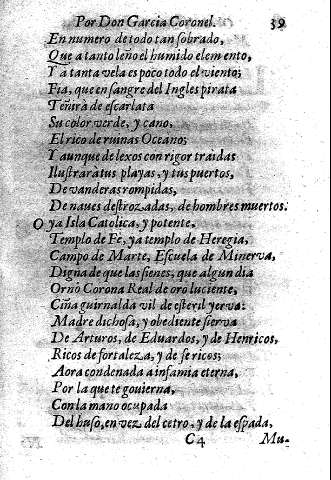 Por Don Garcia Coronel. 39
En numero de todo tan sobrado,
Que a tanto leño el humido elemento,
Y a tanta vela es poco todo el viento;
Fia, que en sangre del Ingles pirata
Teñirà de escarlata
Su color verde, y cano,
El rico de ruinas Oceano;
Y aunque de lexos con rigor traìdas
Ilustrarà tus playas, y tus puertos,
De vanderas rompidas,
De naues destrozadas, de hombres muertos.
O ya Isla Catolica, y potente,
Templo de Fè, ya templo de Heregia,
Campo de Marte, Escuela de Minerva,
Digna de que las sienes, que algun dia
Ornò Corona Real de oro luciente,
Ciña guirnalda vil de esteril yerva:
Madre dichosa, y obediente sierva
De Arturos, de Eduardos, y de Henricos,
Ricos de fortaleza, y de fe ricos;
Aora condenada a infamia eterna,
Por la que te gouierna,
Con la mano ocupada
Del huso, en vez del cetro, y de la espada,
C4 Mu-